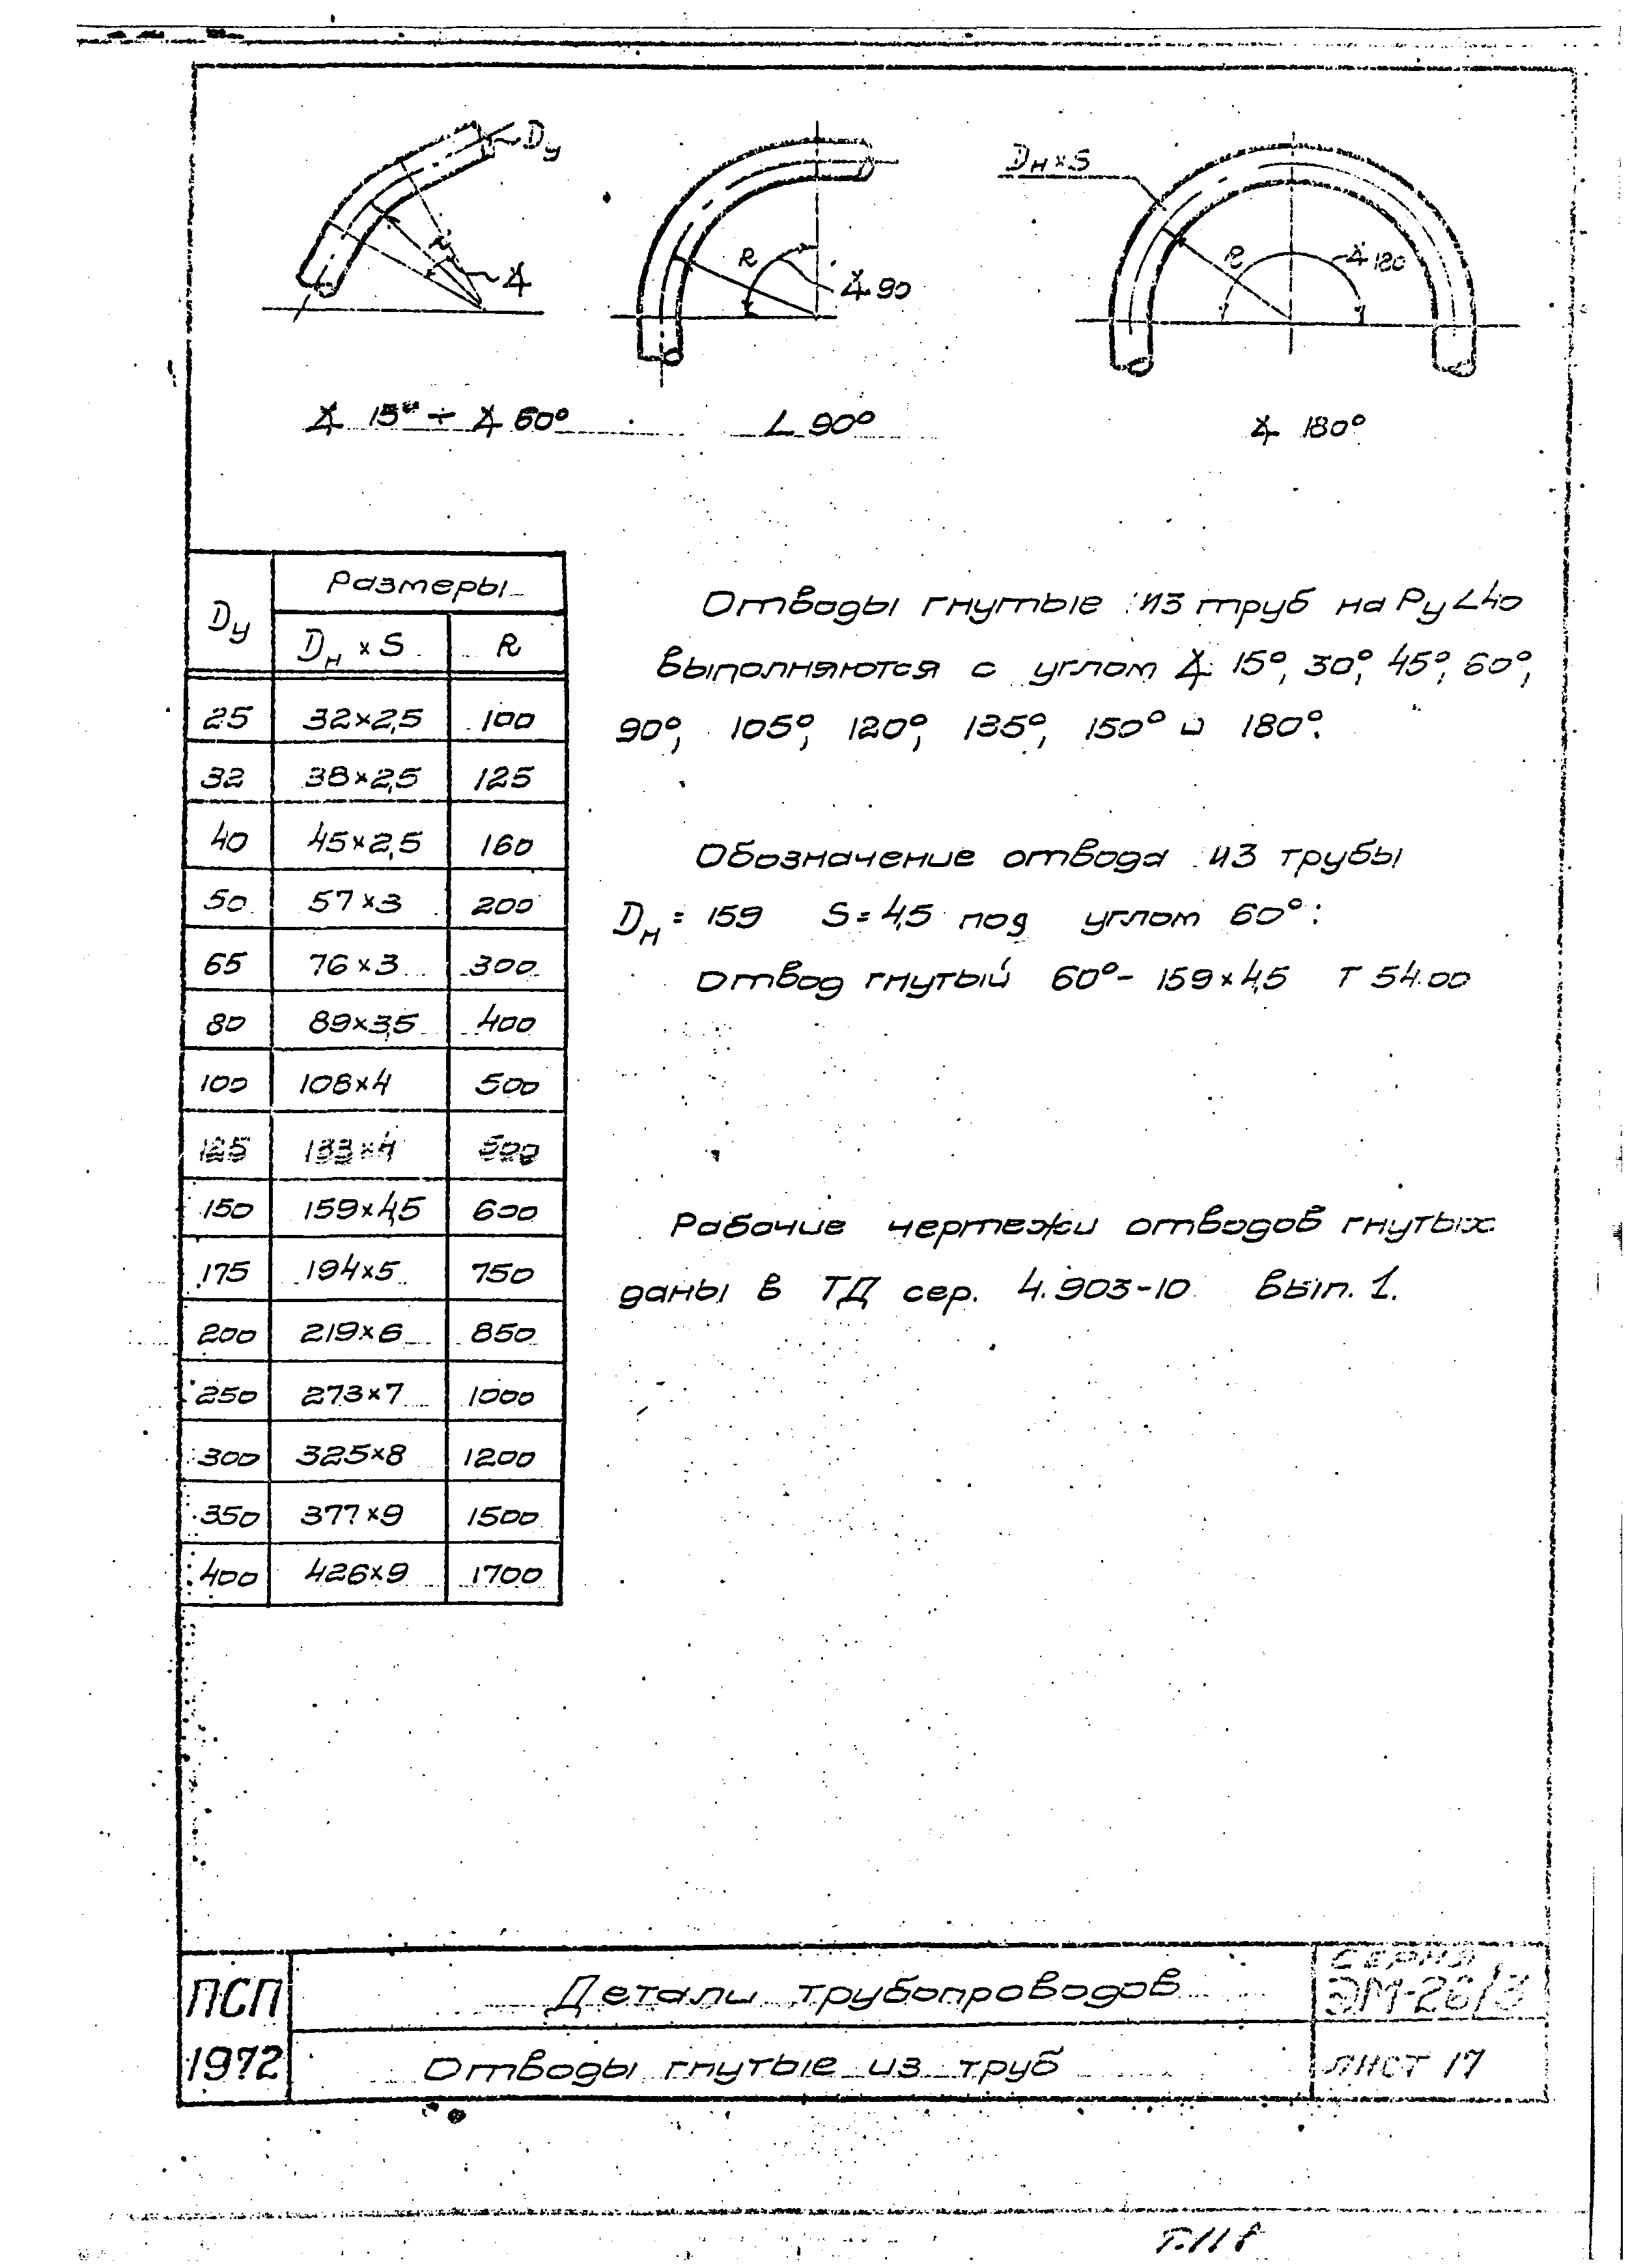 Dу
R
∡
R
∡ 90
Dн×S
R
∡ 180
∡ 15° ÷ ∡ 60°
∠ 90°
∡ 180°
Dу Размеры
Dн × S R
25 32×2,5 100
32 38×2,5 125
40 45×2,5 160
50 57×3 200
65 76×3 300
80 89×3,5 400
100 108×4 500
125 133×4 500
150 159×4,5 600
175 194×5 750
200 219×6 850
250 273×7 1000
300 325×8 1200
350 377×9 1500
400 426×9 1700
Отводы гнутые из труб на Ру<40
выполняются с углом ∡ 15°, 30°, 45°, 60°,
90°, 105°, 120°, 135°, 150° и 180°.
Обозначение отвода из трубы
Dн = 159 S = 4,5 под углом 60°:
Отвод гнутый 60°- 159×4,5 Т 54.00
Рабочие чертежи отводов гнутых
даны в ТД сер. 4.903-10 вып. 1.
ПСП
1972
Детали трубопроводов
Отводы гнутые из труб
СЕРИЯ
ЭМ-26/3
ЛИСТ 17